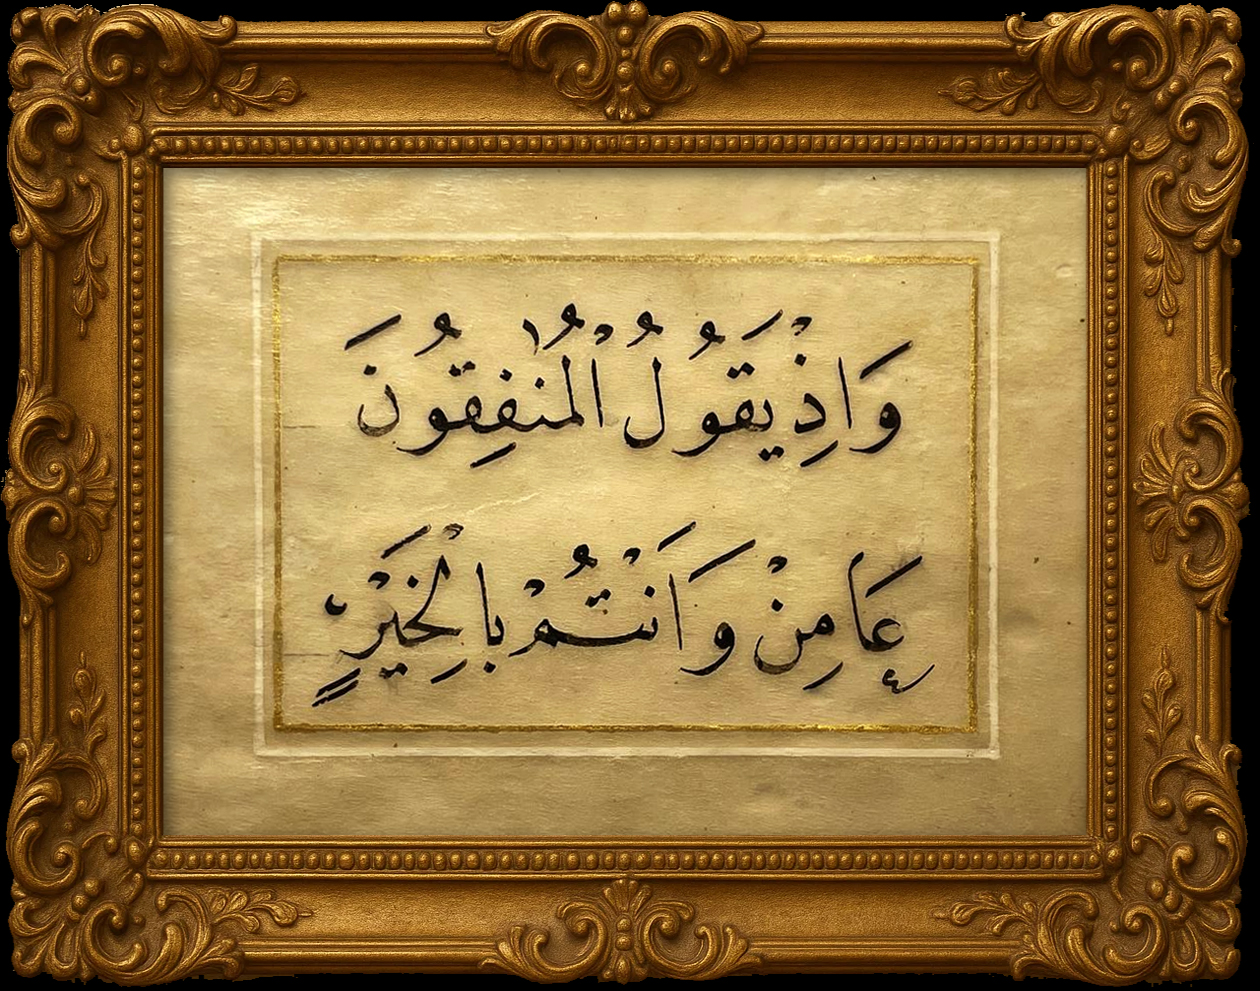 وَاِذْ يَقُولُ الْمُنٰفِقُونَ
عَامِنْ وَاَنْتُمْ بِالْخَيْرٍ